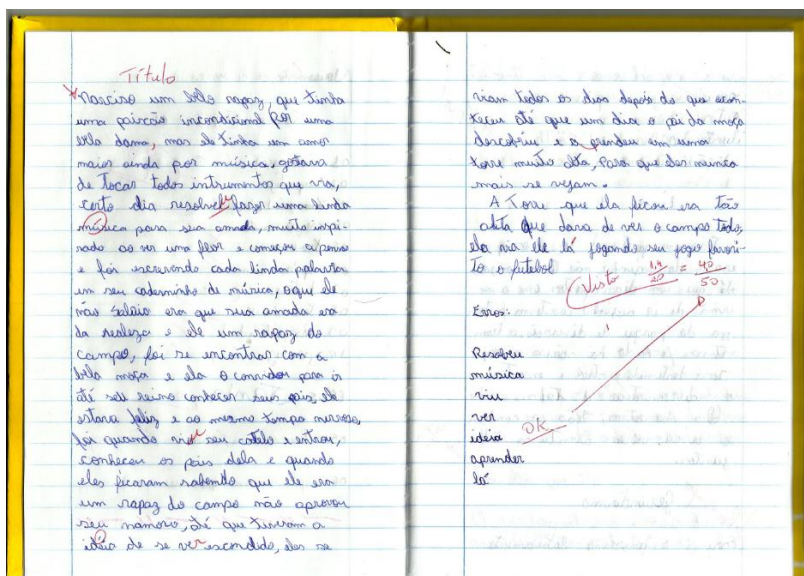 Título
Narciso um belo rapaz, que tinha
uma paixão incondicional por uma
bela dama, mas ele tinha um amor
maior ainda por música, gostava
de tocar todos intrumentos que via,
certo dia resolveu fazer uma linda
música para sua amada, muito inspi-
rado ao ver uma flor e começou a pensar
e foi escrevendo cada linda palavra
em seu caderninho de música, oque ele
não sabia era que sua amada era
da realeza e ele um rapaz do
campo, foi se encontrar com a
bela moça e ela o convidou para ir
até seu reino conhecer seus pais, ele
estava feliz e ao mesmo tempo nervoso,
foi quando viu seu castelo e entrou,
conheceu os pais dela e quando
eles ficaram sabendo que ele era
um rapaz do campo não aprovou
seu namoro, até que tiveram a
idéia de se ver escondido, eles se
viam todos os dias depois do que acon-
teceu até que um dia o pai da moça
descobriu e a prendeu em uma
torre muito alta, Para que eles nunca
mais se vejam.
A Torre que ela ficou era tão
alta que dava de ver o campo todo,
ela via ele lá jogando seu jogo favori-
to o futebol
Visto 1,4/20 = 40/50
Erros:
Resolveu
música
viu
ver
idéia OK
aprender
lá